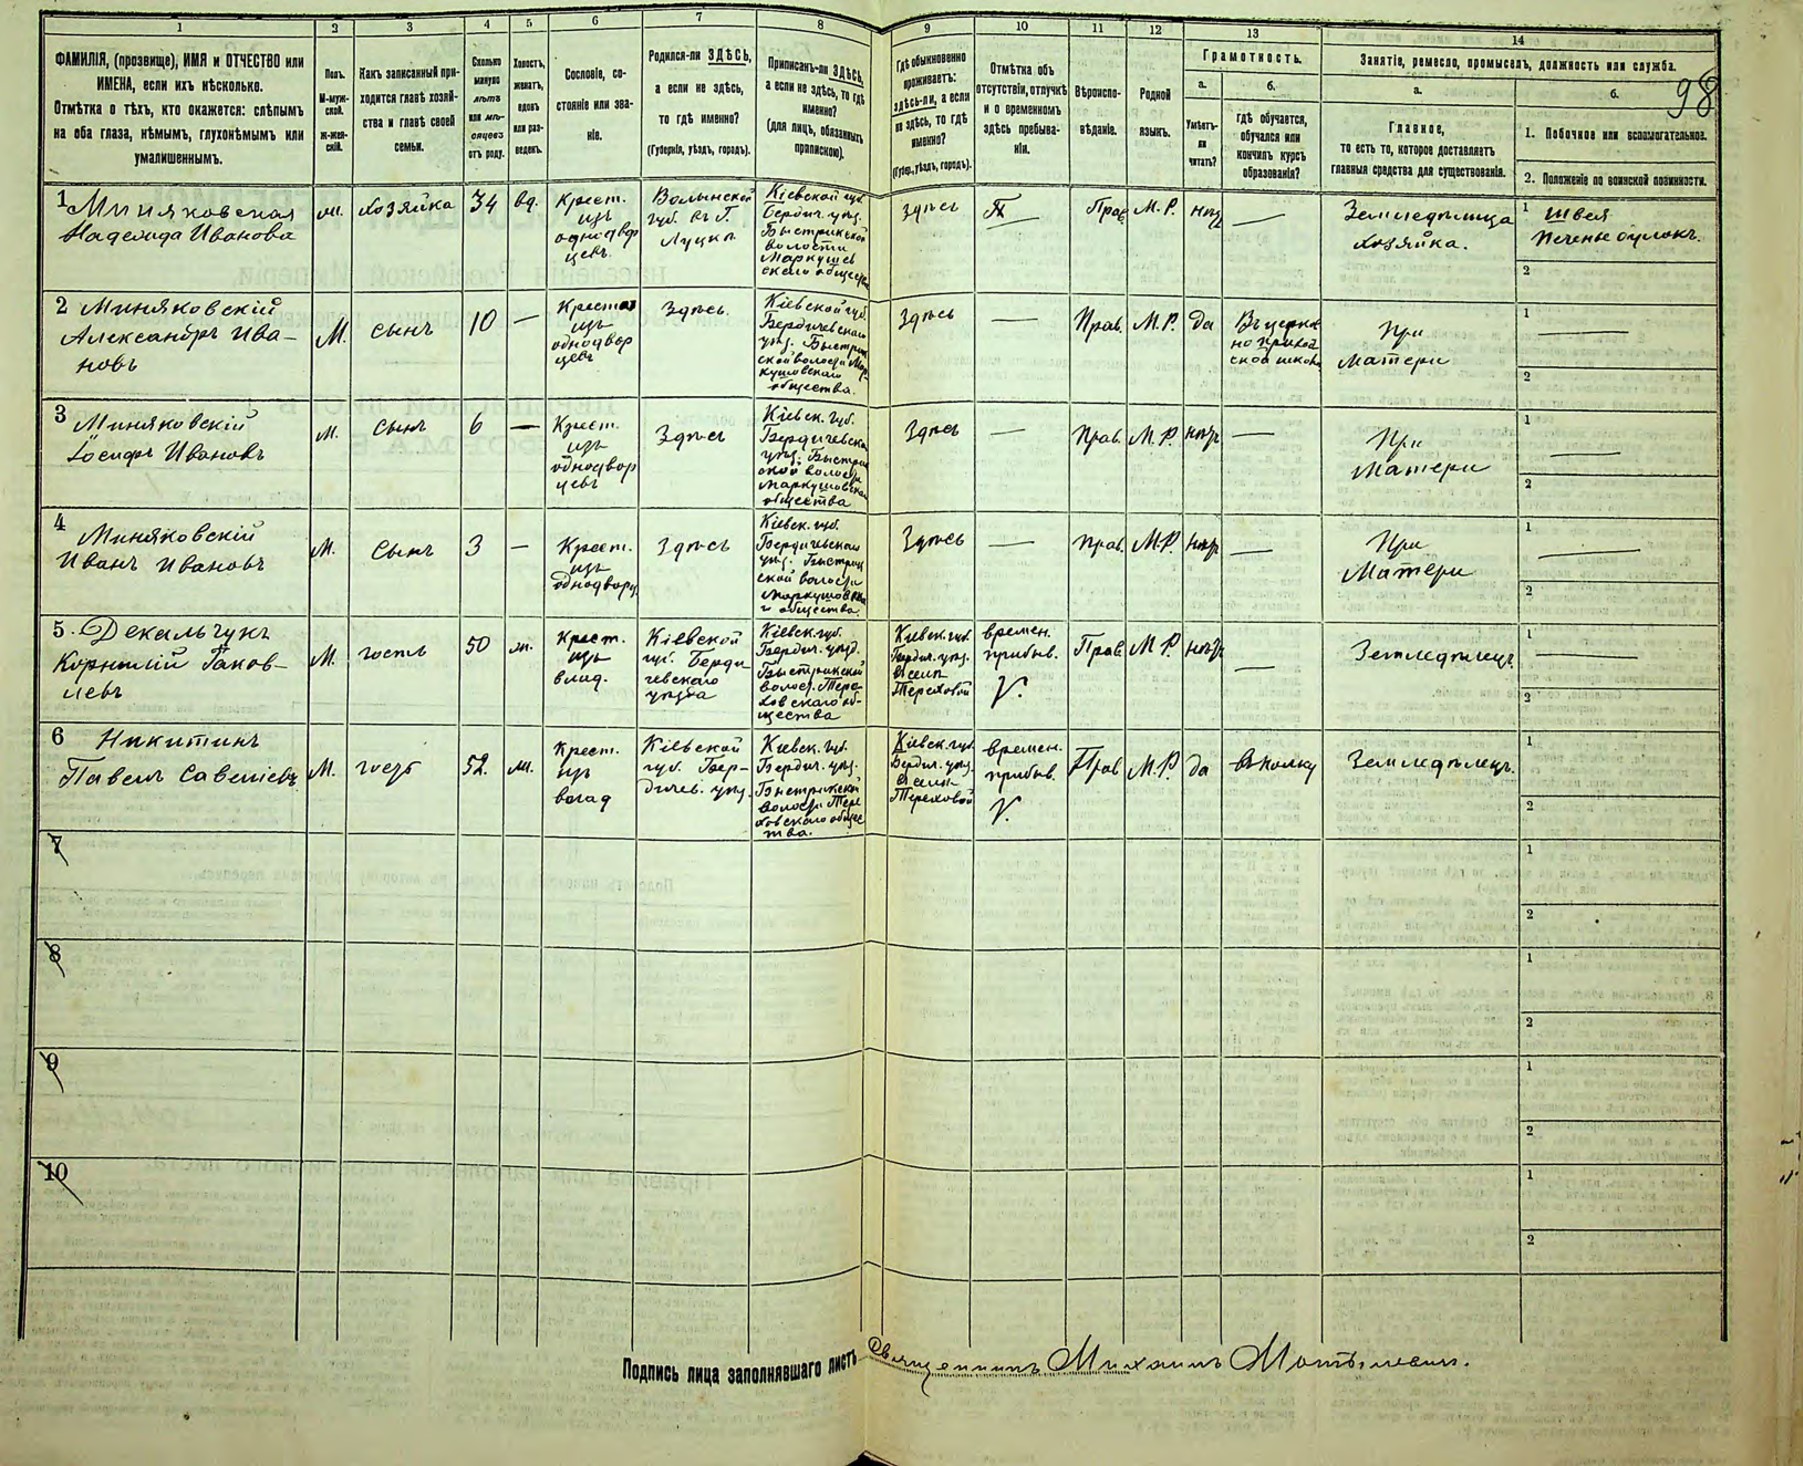 98
1
2
3
4
5
6
7
8
9
10
11
12
13
14
ФАМИЛІЯ, (прозвище), ИМЯ и ОТЧЕСТВО или
ИМЕНА, если ихъ нѣсколько.
Отмѣтка о тѣхъ, кто окажется: слѣпымъ
на оба глаза, нѣмымъ, глухонѣмымъ или
умалишеннымъ.
Полъ.
М-муж-
ской.
Ж-жен-
скій.
Какъ записанный при-
ходится главѣ хозяй-
ства и главѣ своей
семьи.
Сколько
минуло
лѣтъ
или мѣ-
сяцевъ
отъ роду.
Холостъ,
женатъ,
вдовъ
или раз-
веденъ.
Сословіе, со-
стояніе или зва-
ніе.
Родился-ли ЗДѢСЬ,
а если не здѣсь,
то гдѣ именно?
(Губернія, уѣздъ, городъ).
Приписанъ-ли ЗДѢСЬ,
а если не здѣсь, то гдѣ
именно?
(для лицъ, обязанныхъ
припискою).
Гдѣ обыкновенно
проживаетъ:
здѣсь-ли, а если
не здѣсь, то гдѣ
именно?
(Губер., уѣздъ, городъ).
Отмѣтка объ
отсутствіи, отлучкѣ
и о временномъ
здѣсь пребыва-
ніи.
Вѣроиспо-
вѣданіе.
Родной
языкъ.
Грамотность.
а.
Умѣетъ-
ли
читать?
б.
гдѣ обучается,
обучался или
кончилъ курсъ
образованія?
Занятіе, ремесло, промыселъ, должность или служба.
а.
Главное,
то есть то, которое доставляетъ
главныя средства для существованія.
б.
1. Побочное или вспомогательное.
2. Положеніе по воинской повинности.
1 Миняковская
Надежда Иванова
хозяйка
34
вд.
Крест.
изъ
однодвор
цевъ.
Волынской
губ. въ г.
Луцкѣ
Кіевской губ.
Бердич. уѣз.
Быстрикской
волости
Маркушев
скаго общества
Здѣсь
Прав.
М. Р.
нѣтъ
—
Земледѣлица
хозяйка.
1 швея
печенье булокъ.
2
2 Миняковскій
Александръ Ива-
новъ
М.
сынъ
10
—
Крест.
изъ
однодвор
цевъ
Здѣсь.
Кіевской губ.
Бердичевскаго
уѣз. Быстрик
ской волости Мар-
кушовскаго
общества.
Здѣсь
—
Прав.
М. Р.
да
Въ церков
но приход
ской школѣ
При
матери
1
—
2
3 Миняковскій
Іосифъ Ивановъ
м.
сынъ
6
—
Крест.
изъ
однодвор
цевъ
Здѣсь
Кіевск. губ.
Бердичевска
уѣз. Быстрик
ской волости
Маркушовска
общества
Здѣсь
—
Прав.
М. Р.
нѣтъ
—
При
Матери
1
—
2
4 Миняковскій
Иванъ Ивановъ
М.
Сынъ
3
—
Крест.
изъ
однодворц.
Здѣсь
Кіевск. губ.
Бердичевскаго
уѣз. Быстрик
ской волости
Маркушовска
го общества.
Здѣсь
—
Прав.
М. Р.
нѣтъ
—
При
Матери
1
—
2
5. Декальчукъ
Корнилій Яков-
левъ
М.
гость
50
ж.
Крест.
изъ
влад.
Кіевской
губ. Берди
чевскаго
уѣзда
Кіевск. губ.
Бердич. уѣзд.
Быстрикской
волост. Тере-
ховскаго об-
щества
Кіевск. губ.
Бердич. уѣз.
В селѣ
Тереховой
времен.
прибыв.
V.
Прав.
М. Р.
нѣтъ
—
Земледѣлецъ
1
—
2
6 Никитинъ
Павелъ Савеліевъ
М.
гость
52.
Крест.
изъ
влад
Кіевской
губ. Бер-
дичев. уѣз.
Кіевск. губ.
Бердич. уѣз.
Быстрикской
волости Тере
ховскаго общес
тва.
Кіевск. губ.
Бердич. уѣз.
В селѣ
Тереховой
времен.
прибыв.
V.
Прав
М. Р.
да
Въ полку
Земледѣлецъ.
1
2
7
1
2
8
1
2
9
1
2
10
1
2
Подпись лица заполнявшаго листъ Священникъ Михаилъ